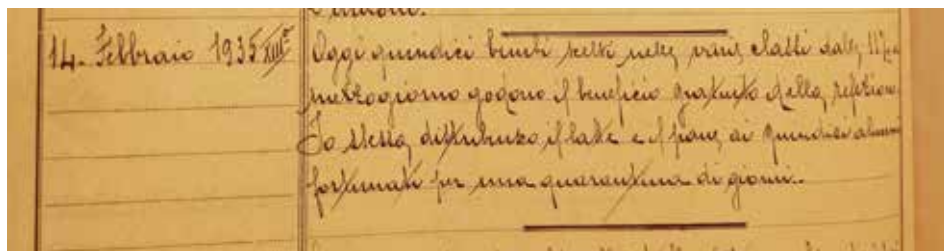 14. Febbraio 1935 XIIIº
Oggi quindici bimbi scelti nelle varie classi dalle 11½ a
mezzogiorno godono il beneficio gratuito della refezione.
Io stessa distribuisco il latte e il pane ai quindici alunni
fortunati per una quarantina di giorni.